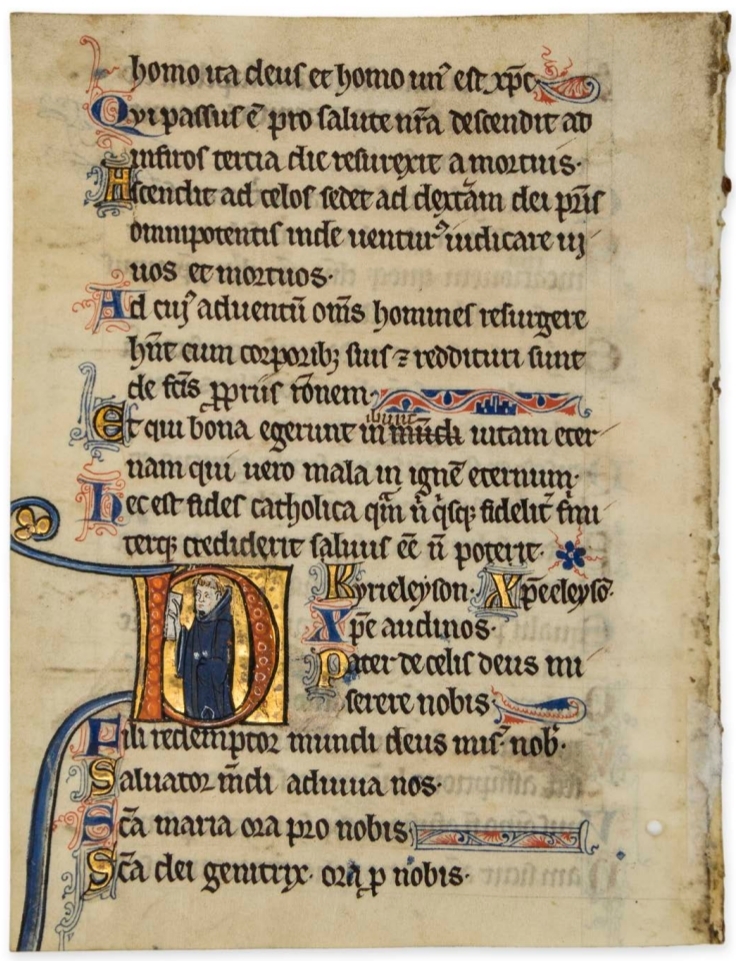 homo ita deuſ et homo unꝰ eſt xp̄c
Qvi paſſuſ ē pro ſalute nr̄a deſcendit ad
infiroſ tercia die reſurexit a mortuis·
Aſcendit ad celoſ ſedet ad dext̄am dei pr̄iſ
omnipotentiſ inde uenturꝰ iudicare ui
uos et mortuos·
Ad cuiꝰ aduentū om̄s homineſ reſurgere
hn̄t cum corporibꝫ ſuis ⁊ reddituri ſunt
de fc̄is ꝓpriis rōnem·
Et qui bona egerunt ibunt in mūdi uitam eter
nam qui uero mala in ignē eternum·
Hec eſt fides catholica qm̄ n̄ qͥſqꝫ fidelit̄ firmi
terqꝫ crediderit ſaluus eē n̄ poterit·
D Kyrieleyson· Xp̄eeleyſō·
Xp̄e audinos·
Pater de celiſ deus mi
ſerere nobis
Fili redemptor mundi deus miſ᷒ nob᷒·
Saluator m̄di adiuua nos·
Sc̄a maria ora pro nobis
Sc̄a dei genitrix· ora ꝑ nobis·